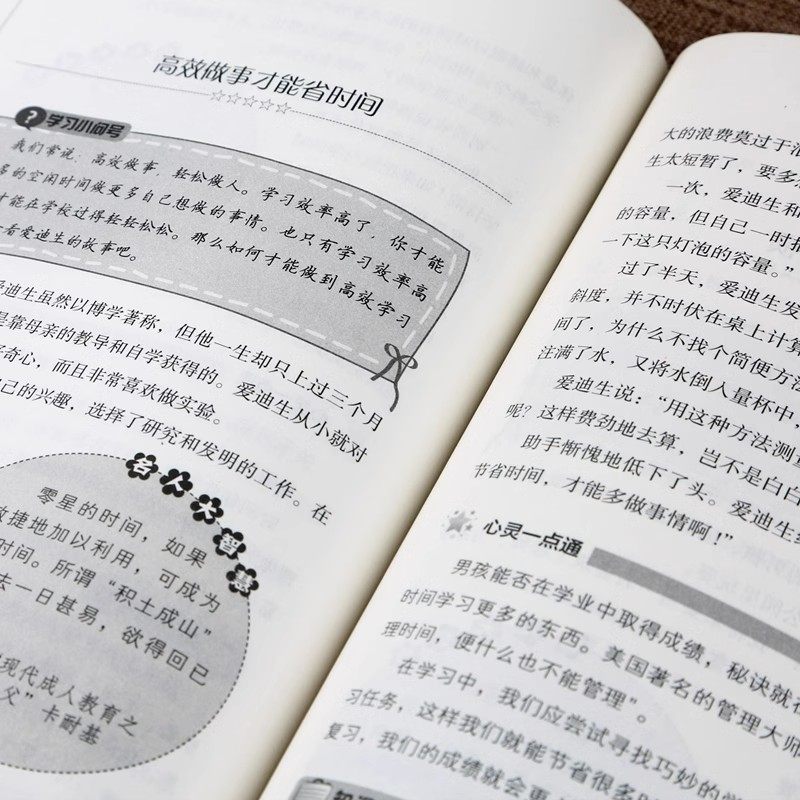 高效做事才能省时间
☆☆☆☆☆
? 学习小问号
我们常说：高效做事，轻松做人。学习效率高了，你才能
多的空闲时间做更多自己想做的事情。也只有学习效率高
才能在学校过得轻轻松松。那么如何才能做到高效学习
看爱迪生的故事吧。
爱迪生虽然以博学著称，但他一生却只上过三个月
是靠母亲的教导和自学获得的。爱迪生从小就对
好奇心，而且非常喜欢做实验。
己的兴趣，选择了研究和发明的工作。在
名人大智慧
零星的时间，如果
敏捷地加以利用，可成为
时间。所谓“积土成山”
去一日甚易，欲得回已
现代成人教育之
父”卡耐基
大的浪费莫过于浪
生太短暂了，要多
一次，爱迪生和
的容量，但自己一时抽
一下这只灯泡的容量。”
过了半天，爱迪生发
斜度，并不时伏在桌上计算
间了，为什么不找个简便方法
注满了水，又将水倒入量杯中，
爱迪生说：“用这种方法测量
呢？这样费劲地去算，岂不是白白
助手惭愧地低下了头。爱迪生
节省时间，才能多做事情啊！”
心灵一点通
男孩能否在学业中取得成绩，秘诀就
时间学习更多的东西。美国著名的管理大师
理时间，便什么也不能管理”。
在学习中，我们应尝试寻找巧妙的学
习任务，这样我们就能节省很多
复习，我们的成绩就会更